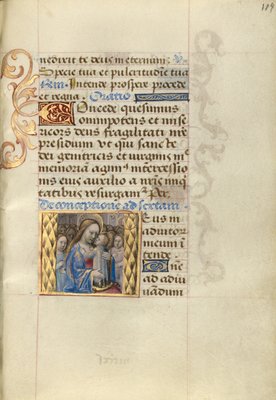 119
nedixit te deus in eternum: V.
Specie tua et pulcritudine tua
Rm. Intende prospere procede
et regna. Oratio
Concede quesumus
omnipotens et mise
ricors deus fragilitati nre
presidium vt qui sancte de
dei genitricis et virginis m
memoriā agim9 intercessio
nis eius auxilio a nris iniq
tatibus resurgam9 Per.
De conceptione ad sextam.
Eus in
adiutor
ieum in
tende.
Dne
ad adiu
uandum